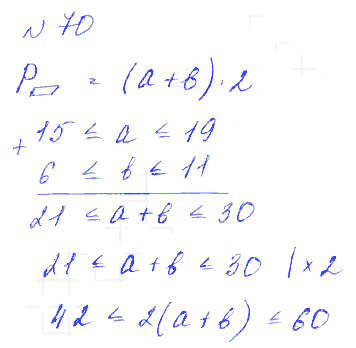 № 70
P▱ = (a+b)·2
+ 15 ≤ a ≤ 19
6 ≤ b ≤ 11
21 ≤ a+b ≤ 30
21 ≤ a+b ≤ 30 | × 2
42 ≤ 2(a+b) ≤ 60